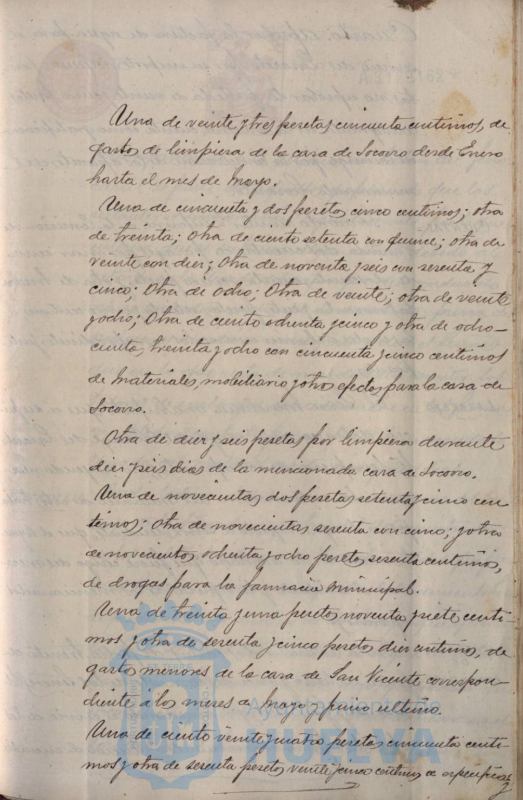 Una de veinte y tres pesetas cincuenta centimos, de
gastos de limpiera de la casa de Socorro desde Enero
hasta el mes de Mayo.
Una de cincuenta y dos pesetas cinco centimos; otra
de treinta; otra de ciento setenta con quince; otra de
veinte con diez; otra de noventa y seis con sesenta y
cinco; otra de ocho; otra de veinte; otra de veinte
y ocho; otra de ciento ochenta y cinco y otra de ocho-
cientas treinta y ocho con cincuenta y cinco centimos
de materiales, mobiliario y otros efectos para la casa de
Socorro.
Otra de diez y seis pesetas por limpiera durante
diez y seis dias de la mencionada casa de Socorro.
Una de novecientas dos pesetas setenta y cinco cen
timos; otra de novecientas sesenta con cinco; y otra
de novecientas ochenta y ocho pesetas sesenta centimos,
de drogas para la farmacia municipal.
Una de treinta y una pesetas noventa y siete centi
mos y otra de sesenta y cinco pesetas diez centimos, de
gastos menores de la casa de San Vicente correspon-
diente á los meses de Mayo y Junio ultimo.
Una de ciento veinte y cuatro pesetas cincuenta centi
mos y otra de sesenta pesetas veinte y cinco centimos de
HUELVA